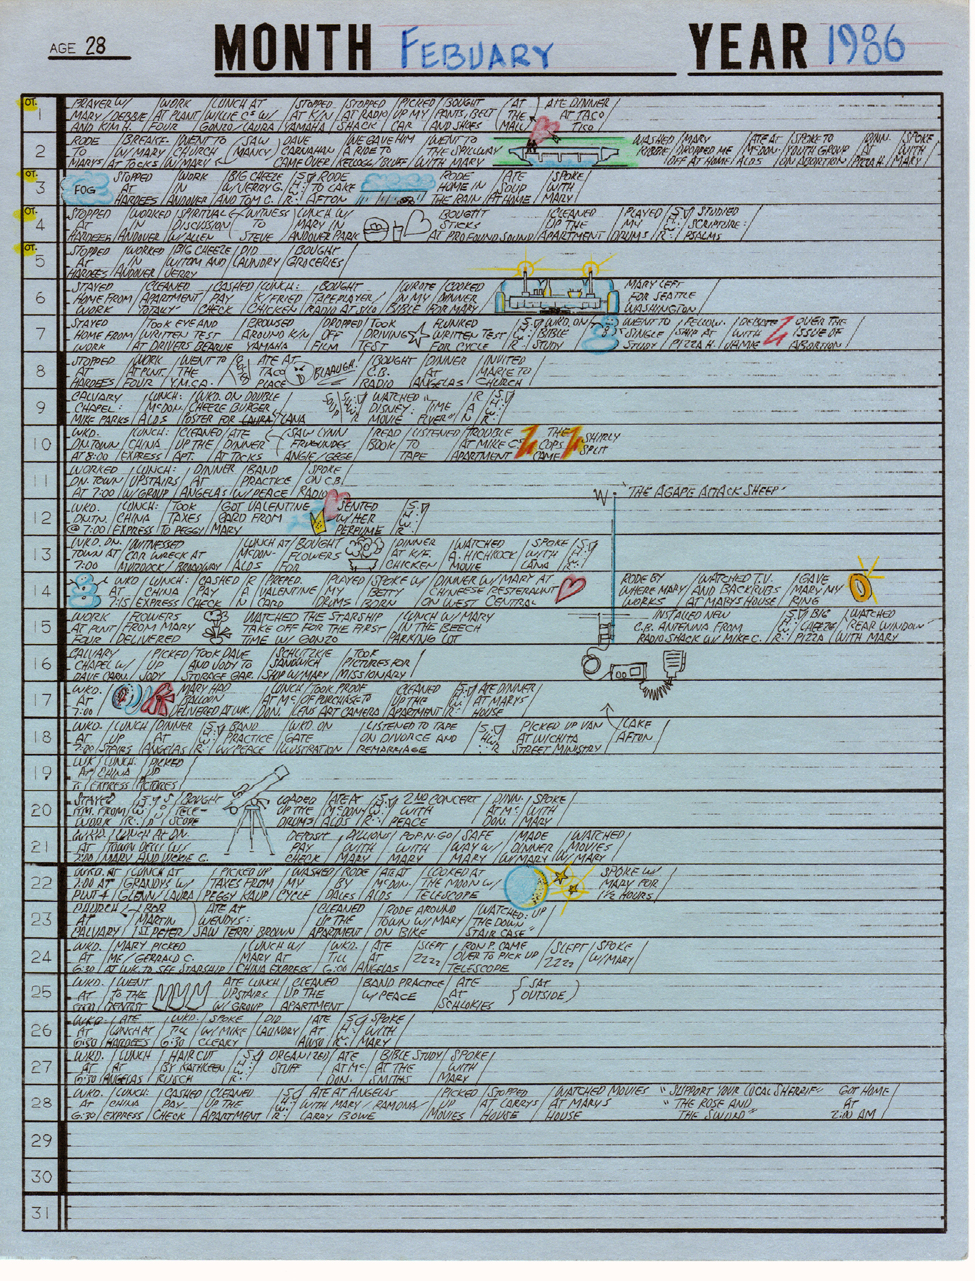 AGE 28 MONTH FEBUARY YEAR 1986
OT. PRAYER W/ / WORK / LUNCH AT / STOPPED / STOPPED / PICKED / BOUGHT / AT / ATE DINNER /
1 MARY / DEBBIE / AT PLANT / WILLIE C'S W/ / AT K/N / AT RADIO / UP MY / PANTS, BELT / THE / AT TACO /
AND KIM H. / FOUR / GONZO / LAURA / YAMAHA / SHACK / CAR / AND SHOES / MALL / TICO /
RODE / BREAK- / WENT TO / SAW / DAVE / WE GAVE HIM / WENT TO / WASHED / MARY / ATE AT / SPOKE TO / DINN. / SPOKE
2 TO W/MARY / CHURCH / NANCY / CARNAHAN / A RIDE TO / THE SPILLWAY / DROPPED ME / McDON- / YOUTH GROUP / AT / WITH
MARY'S / AT TOCKS / W/MARY / CAME OVER / KELLOG / BUFF / WITH MARY / OFF AT HOME / ALDS / ON ABORTION / PIZZA H. / MARY
OT. STOPPED / WORK / BIG CHEEZE / RODE / RODE / ATE / SPOKE /
3 FOG AT / IN / W/JERRY G. / TO LAKE / HOME IN / SOUP / WITH /
HARDEES / ANDOVER / AND TOM C. / AFTON / THE RAIN / AT HOME / MARY /
OT. STOPPED / WORKED / SPIRITUAL / WITNESS / LUNCH W/ / BOUGHT / CLEANED / PLAYED / STUDIED
4 AT / IN / DISCUSSION / TO / MARY IN / STICKS / UP THE / MY / SCRIPTURE:
HARDEES / ANDOVER / W/ALLEN / STEVE / ANDOVER PARK / AT PROFOUND SOUND / APARTMENT / DRUMS / PSALMS
OT. STOPPED / WORKED / BIG CHEEZE / DID / BOUGHT /
5 AT / IN / W/TOM AND / LAUNDRY / GROCERIES /
HARDEES / ANDOVER / JERRY /
STAYED / CLEANED / CASHED / LUNCH: / BOUGHT / WROTE / COOKED / MARY LEFT /
6 HOME FROM / APARTMENT / PAY / K/FRIED / TAPEPLAYER / IN MY / DINNER / FOR SEATTLE /
WORK / TOTALY / CHECK / CHICKEN / BIBLE / FOR MARY / WASHINGTON /
STAYED / TOOK EYE AND / BROWSED / DROPPED / TOOK / FLUNKED / WKD. ON / WENT TO / FELLOW- / DEBATE / OVER THE
7 HOME FROM / WRITTEN TEST / AROUND K/N / OFF / DRIVING / WRITTEN TEST / BIBLE / SINGLE / SHIP AT / WITH / ISSUE OF
WORK / AT DRIVERS BERAUE / YAMAHA / FILM / TEST / FOR CYCLE / STUDY / STUDY / PIZZA H. / JAMIE / ABORTION
STOPPED / WORK / WENT TO / ATE AT / BOUGHT / DINNER / INVITED /
8 AT / AT PLNT. / THE / TACO / BLAAUGH. / C.B. / AT / MARIE TO /
HARDEES / FOUR / Y.M.C.A. / PLACE / RADIO / ANGELAS / CHURCH /
CALVARY / LUNCH: / WKD. ON DOUBLE / WATCHED
9 CHAPEL: / McDON- / CHEEZE BURGER / DISNEY: / TIME
MIKE PARKS / ALDS / POSTER FOR LAURA / LANA / MOVIE / FLYER
WKD. / LUNCH: / CLEANED / ATE / SAW LYNN / READ / LISTENED / TROUBLE / THE / SHIRLY
10 DN.TOWN / CHINA / UP THE / DINNER / BOOK / TO / AT MIKE C'S / COPS / SPLIT
AT 8:00 / EXPRESS / APT. / AT TACKS / ANGIE / GEGE / TAPE / APARTMENT / CAME
WORKED / LUNCH: / DINNER / BAND / SPOKE
11 DN.TOWN / UPSTAIRS / AT / PRACTICE / ON C.B.
AT 7:00 / W/GROUP / ANGELAS / W/PEACE / RADIO
"THE AGAPE ATTACK SHEEP"
WKD. / LUNCH: / TOOK / GOT VALENTINE / SENTED
12 DNTN. / CHINA / TAXES / CARD FROM / W/HER
@ 7:00 / EXPRESS / TO PEGGY / MARY / PERFUME
WKD. DN. / WITNESSED / LUNCH AT / BOUGHT / DINNER / WATCHED / SPOKE
13 TOWN AT / CAR WRECK AT / McDON- / FLOWERS / AT K/F. / A HICHROCK / WITH
7:00 / MURDOCK / BROADWAY / ALDS / FOR / CHICKEN / MOVIE / LANA
WKD / LUNCH: / CASHED / PREPED. / PLAYED / SPOKE W/ / DINNER W/ MARY AT / RODE BY / WATCHED T.V. / GAVE
14 AT / CHINA / PAY / A VALENTINE / MY / BETTY / CHINESE RESTERAUNT / WHERE MARY / AND BACKRUBS / MARY MY
7:15 / EXPRESS / CHECK / CARD / DRUMS / BORN / ON WEST CENTRAL / WORKS / AT MARYS HOUSE / RING
WORK / FLOWERS / WATCHED THE STARSHIP / LUNCH W/ MARY / INSTALLED NEW / BIG / WATCHED
15 AT PLNT / FROM MARY / TAKE OFF FOR THE FIRST / IN THE BEECH / C.B. ANTENNA FROM / CHEEZE / "REAR WINDOW"
FOUR / DELIVERED / TIME W/ GONZO / PARKING LOT / RADIO SHACK W/ MIKE C. / PIZZA / WITH MARY
CALVARY / PICKED / TOOK DAVE / SCHLITZKIE / TOOK
16 CHAPEL W/ / UP / AND JODY TO / SANDWICH / PICTURES FOR
DAVE CARN. / JODY / STORAGE GAR. / SHOP W/MARY / MISSIONARY
WKD. / MARY HAD / LUNCH / TOOK PROOF / CLEANED / ATE DINNER
17 AT / BALLOON / AT Mc. / OF PURCHASE TO / UP THE / AT MARYS'
7:00 / DELIVERED AT WK. / DON. / LENS ART CAMERA / APARTMENT / HOUSE
WKD. / LUNCH / DINNER / BAND / WKD. ON / LISTENED TO TAPE / PICKED UP VAN / LAKE
18 AT / UP / AT / PRACTICE / GATE / ON DIVORCE AND / AT WICHITA / AFTON
7:00 / STAIRS / ANGELAS / W/PEACE / ILLUSTRATION / REMARRIAGE / STREET MINISTRY
WK / LUNCH: / PICKED
19 AT / CHINA / UP
EXPRESS / PICTURES
STAYED / BOUGHT / LOADED / ATE AT / 2ND CONCERT / DINN. / SPOKE
20 HM. FROM / TELE- / UP THE / McDON- / WITH / AT Mc / WITH
WORK / SCOPE / DRUMS / ALDS / PEACE / DON. / MARY
WKD. / LUNCH AT DN. / DEPOSIT / DILLIONS / POP-N-GO / SAFE / MADE / WATCHED
21 AT / TOWN DELI W/ / PAY / WITH / WITH / WAY W/ / DINNER / MOVIES
7:00 / MARY AND VICKIE G. / CHECK / MARY / MARY / MARY / W/MARY / W/MARY
WKD. AT / LUNCH AT / PICKED UP / WASHED / RODE / ATE AT / LOOKED AT / SPOKE W/
22 7:00 AT / GRANDYS W/ / TAXES FROM / MY / BY / McDON- / THE MOON W/ / MARY FOR
PLNT 4 / GLENN / LAURA / PEGGY KAUP / CYCLE / DALES / ALDS / TELESCOPE / 1½ HOURS
CHURCH / BOB / ATE AT / CLEANED / RODE AROUND / WATCHED: UP
23 AT / MARTIN / WENDYS: / UP THE / TOWN W/MARY / THE DOWN
CALVARY / 1ST PETER / SAW TERRI BROWN / APARTMENT / ON BIKE / STAIR CASE"
WKD. / MARY PICKED / LUNCH W/ / WKD. / ATE / SLEPT / RON P. CAME / SLEPT / SPOKE
24 AT / ME / GERRALD C. / MARY AT / TILL / AT / ZZZZ / OVER TO PICK UP / ZZZZ / W/MARY
6:30 / AT WK. TO SEE STARSHIP / CHINA EXPRESS / 6:00 / ANGELAS / TELESCOPE
WKD. / WENT / ATE LUNCH / CLEANED / BAND PRACTICE / ATE / SAT
25 AT / TO THE / UPSTAIRS / UP THE / W/PEACE / AT / OUTSIDE
DENTIST / W/ GROUP / APARTMENT / SCHLOKIES
WKD. / ATE / WKD. / SPOKE / DID / ATE / SPOKE
26 AT / LUNCH AT / TILL / W/MIKE / LAUNDRY / AT / WITH
6:30 / HARDEES / 6:30 / CLEARY / MARY
WKD. / LUNCH / HAIRCUT / ORGANIZED / ATE / BIBLE STUDY / SPOKE
27 AT / AT / BY KATHLEEN / STUFF / AT Mc. / AT THE / WITH
6:30 / ANGELAS / RUSCH / DON. / SMITHS / MARY
WKD. / LUNCH: / CASHED / CLEANED / ATE AT ANGELAS / PICKED / STOPPED / WATCHED MOVIES / "SUPPORT YOUR LOCAL SHERRIF" / GOT HOME
28 AT / CHINA / PAY / UP THE / WITH MARY / RAMONA / UP / AT LARRYS / AT MARYS / "THE ROSE AND / AT
6:30 / EXPRESS / CHECK / APARTMENT / LARRY BOWE / MOVIES / HOUSE / HOUSE / THE SWORD" / 2:00 AM
29
30
31